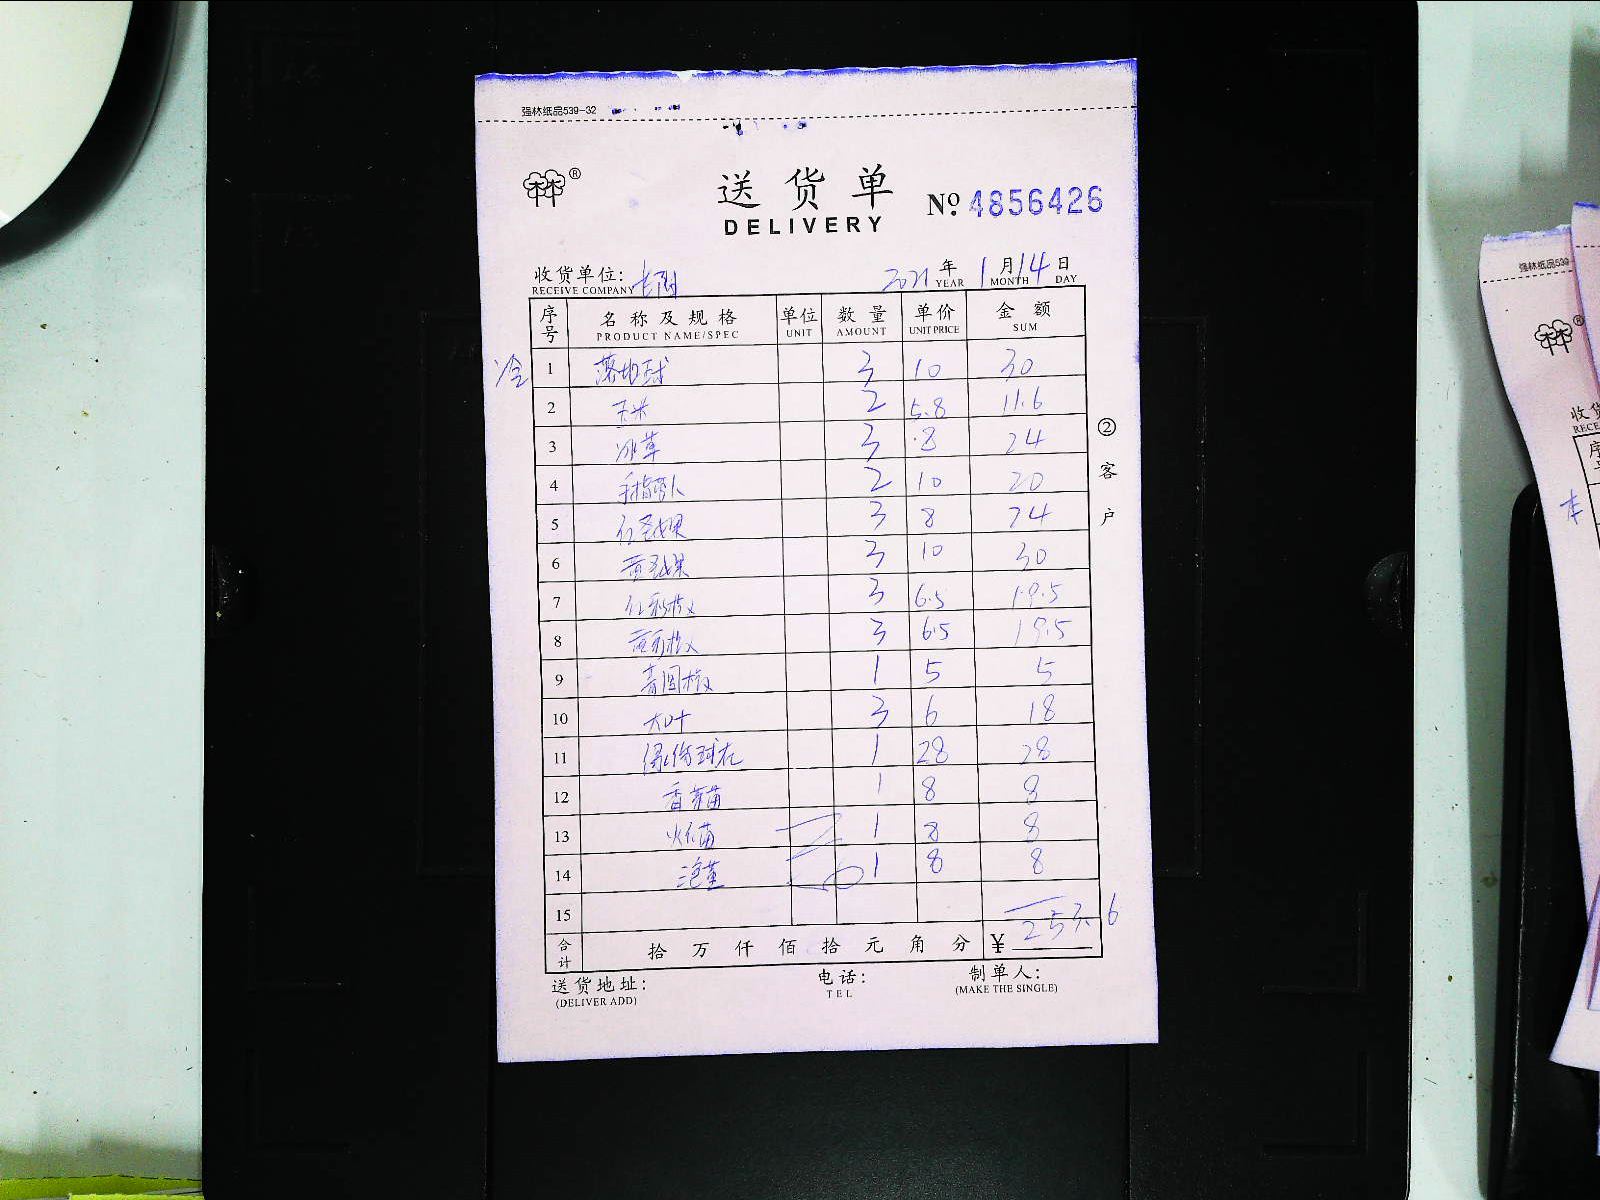 强林纸品539-32
送货单
DELIVERY
№ 4856426
收货单位:
RECEIVE COMPANY
2021年 1月14日
YEAR MONTH DAY
序号 名称及规格 单位 数量 单价 金额
PRODUCT NAME/SPEC UNIT AMOUNT UNIT PRICE SUM
冷 1 落地球 3 10 30
2 玉米 2 5.8 11.6
3 冰草 3 8 24
4 手指萝卜 2 10 20
5 红圣女果 3 8 24
6 黄圣女果 3 10 30
7 红彩椒 3 6.5 19.5
8 黄彩椒 3 6.5 19.5
9 青圆椒 1 5 5
10 大叶 3 6 18
11 1 28 28
12 香菜苗 1 8 8
13 1 8 8
14 1 8 8
15
合计 拾万仟佰拾元角分 ¥ 253.6
送货地址: 电话: 制单人:
(DELIVER ADD) TEL (MAKE THE SINGLE)
②客户
强林纸品539
本